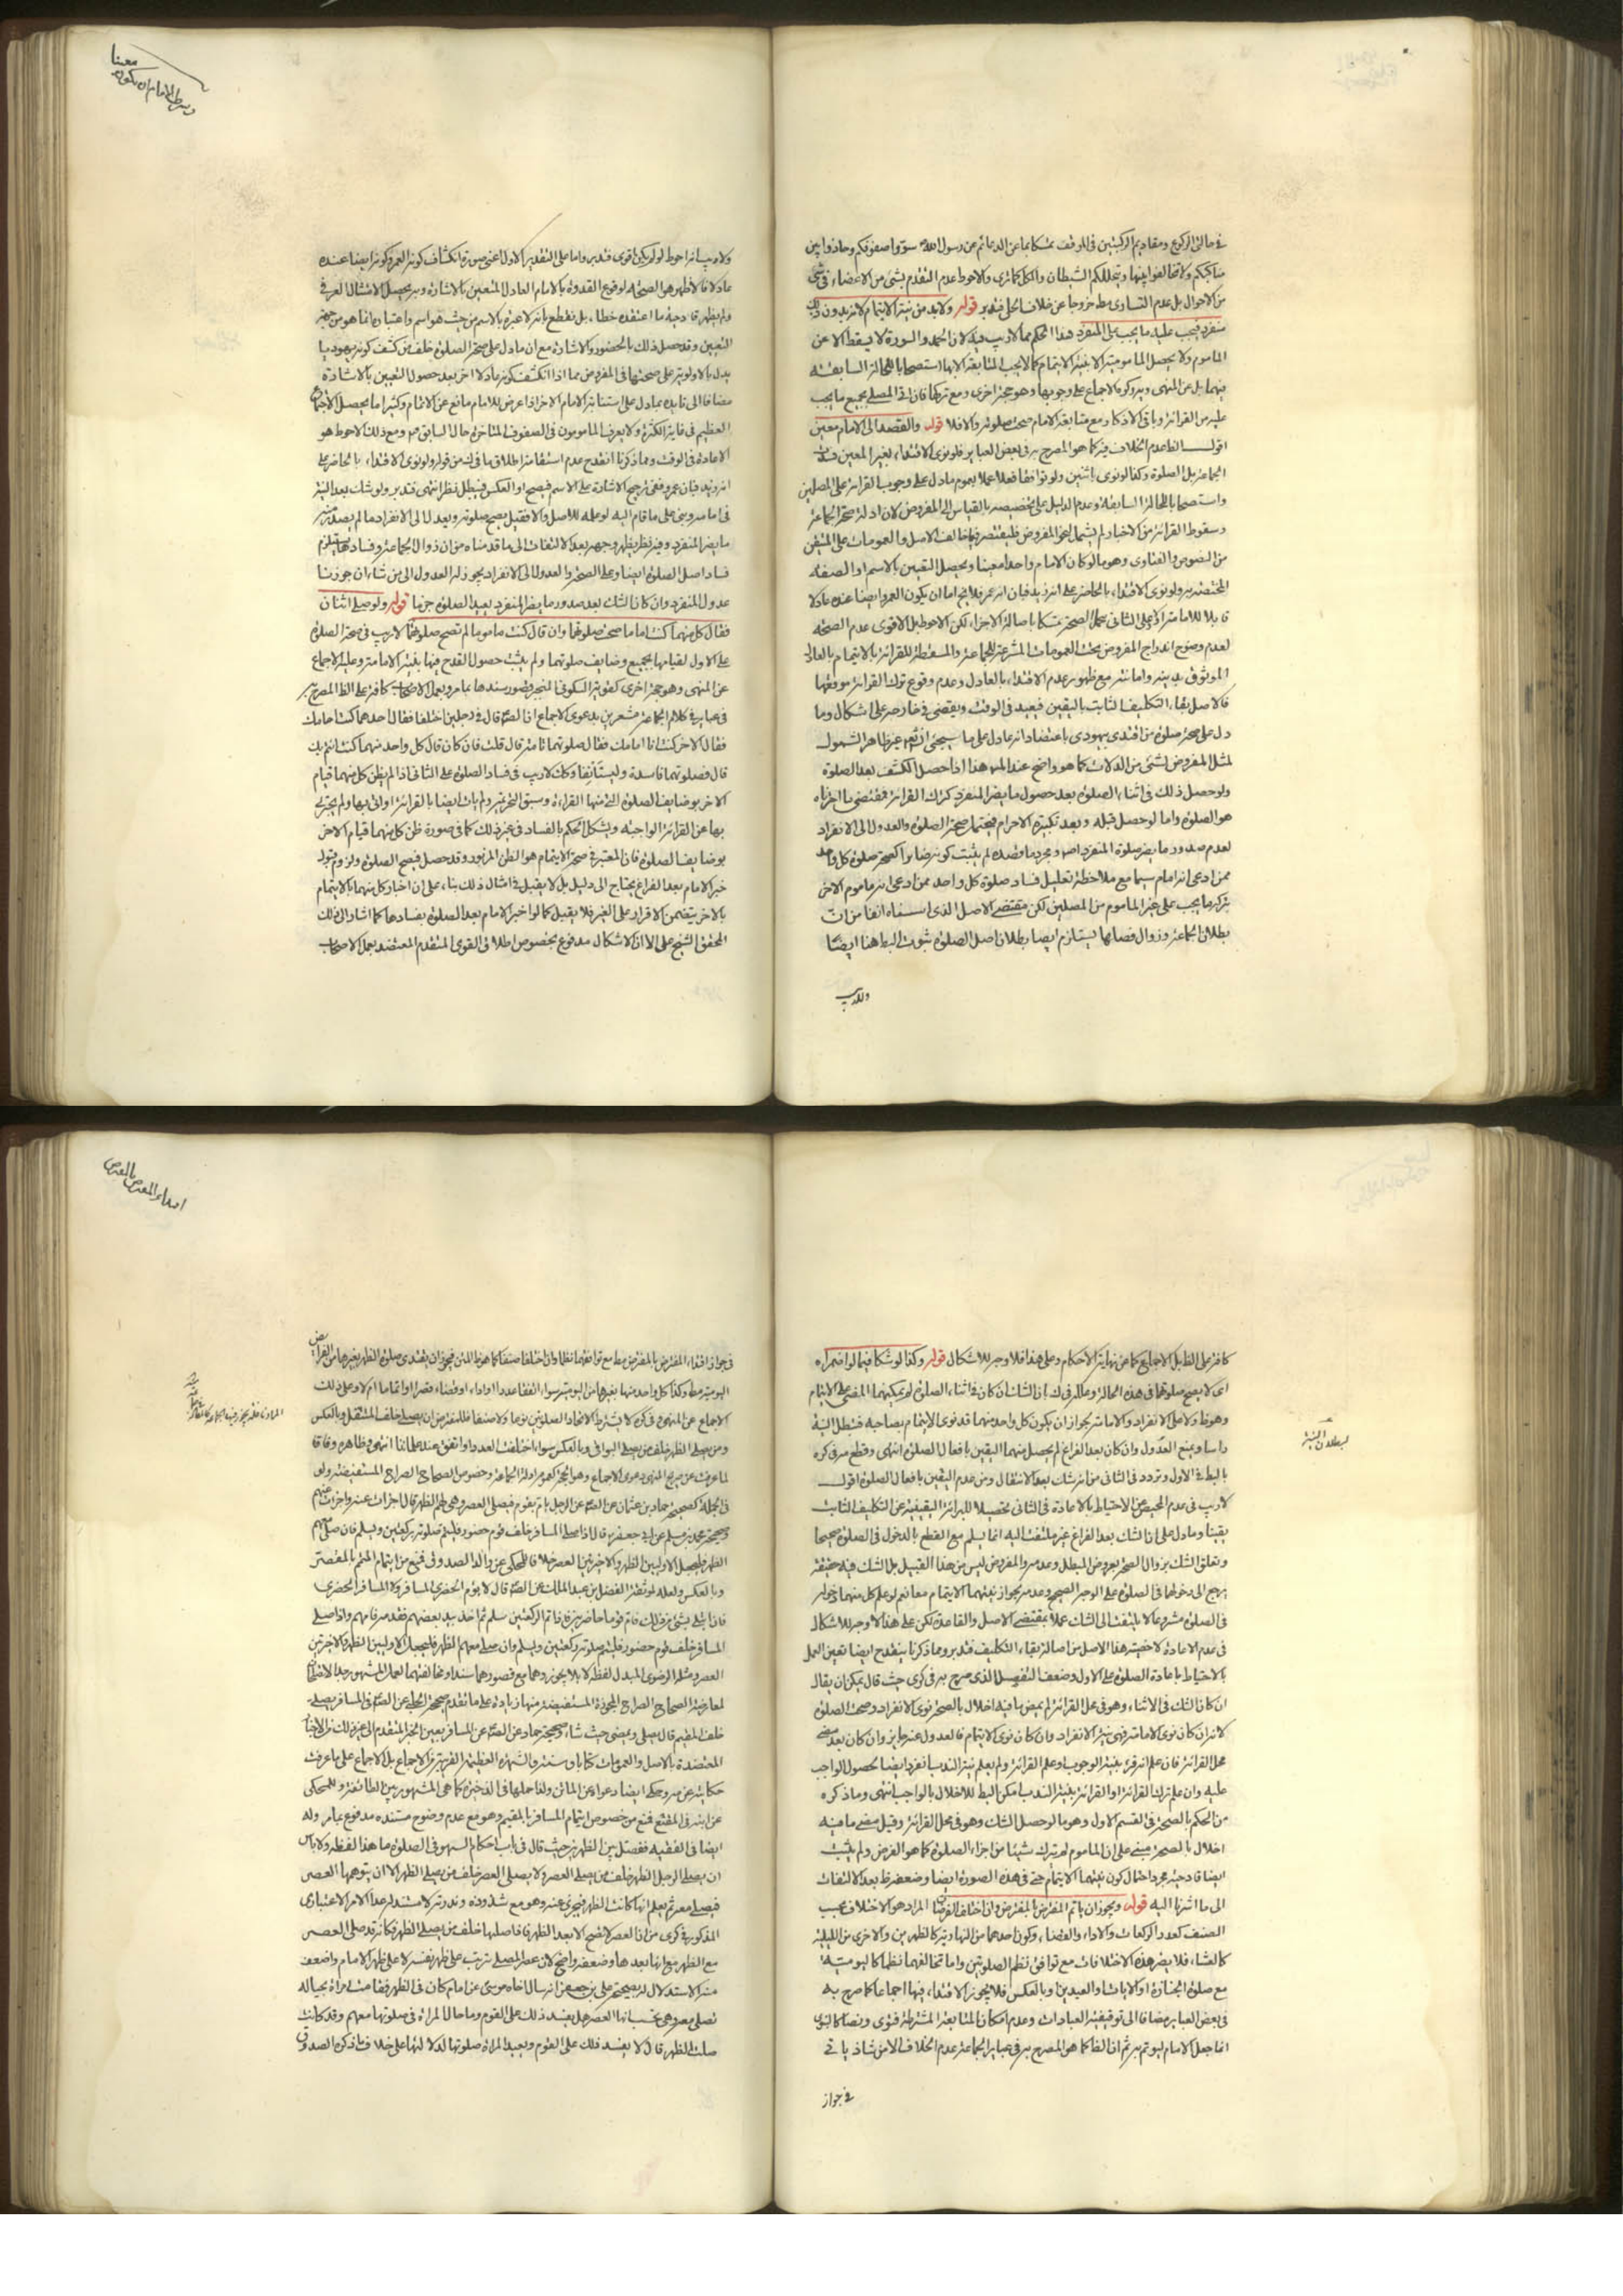 في حالتي الركوع ومقاديم الركبتين في الموقف تمسكا بما عن الدعائم عن رسول الله سووا صفوفكم وحاذوا بين
مناكبكم ولا تخالفوا بينها ويتخللكم الشيطان والكل كما ترى والاحوط عدم التقدم بشئ من الاعضاء في شئ
من الاحوال بل عدم التساوي مط خروجا عن خلاف الحلي فتدبر قوله ولابد من نية الايتمام لانه بدون ذلك
منفرد فيجب عليه ما يجب على المنفرد هذا الحكم مما لاريب فيه لان الحمد والسورة لا يسقط الا عن
الماموم ولا يحصل المامومية الا بنية الايتمام كما لا يجب المتابعة الا بها استصحابا للحالة السابقة
فيهما بل عن المنهى وغيره الاجماع على وجوبها وهو حجة اخرى ومع تركها فان اتى المصلي بجميع ما يجب
عليه من القرائة وباقي الاذكار مع متابعة الامام صحت صلوته والا فلا قوله والقصد الى الامام معين
اقول الظ عدم الخلاف فيه كما هو المصرح به في بعض العباير فلو نوى الاقتداء بغير المعين فسدت
الجماعة بل الصلوة وكذا لو نوى باثنين ولو توافقا فعلا عملا بعموم ما دل على وجوب القرائة على المصلين
واستصحابا للحالة السابقة وعدم الدليل على تخصيصه بالقياس الى المفروض لان ادلة صحة الجماعة
وسقوط القرائة من الاخبار لم يشمل لنحو المفروض فليقتصر فيما خالف الاصل والعمومات على المتيقن
من النصوص والفتاوى وهو ما لو كان الامام واحدا معينا ويحصل التعيين بالاسم او الصفة
المختصة به ولو نوى الاقتداء بالحاضر على انه زيد فبان انه عمر فلا يخ اما ان يكون العمرو ايضا عنده عادلا
قابلا للامامة ام لا وعلى الثاني يحتمل الصحة تمسكا باصالة الاجزاء لكن الاحوط بل الاقوى عدم الصحة
لعدم وضوح اندراج المفروض تحت العمومات المشرعة للجماعة والمسقطة للقرائة بالايتمام بالعادل
الموثوق بدينه وامانته مع ظهور عدم الاقتداء بالعادل وعدم وقوع ترك القرائة موقعها
فالاصل بقاء التكليف الثابت باليقين فيعيد في الوقت ويقضي في خارجه على اشكال وما
دل على صحة صلوة من اقتدى بيهودي باعتقاد انه عادل على ما سيجئ انشاء غير ظاهر الشمول
لمثل المفروض بشئ من الدلالات كما هو واضح عند المتدبر هذا اذا حصل الكشف بعد الصلوة
ولو حصل ذلك في اثناء الصلوة بعد حصول ما يضر المنفرد كترك القرائة فمقتضى ما اخرناه
هو الصلوة واما لو حصل قبله وبعد تكبيرة الاحرام فيحتمل صحة الصلوة والعدول الى الانفراد
لعدم صدور ما يضر صلوة المنفرد اصلا ومجرد ما قصده لم يثبت كونه ضايرا كصحة صلوة كل واحد
ممن ادعى انه امام سيما مع ملاحظة تعليل فساد صلوة كل واحد ممن ادعى انه ماموم الاخر
بتركه ما يجب على غير الماموم من المصلين لكن مقتضى الاصل الذي اسسناه انفا من ان
بطلان الجماعة وزوال فضلها يستلزم ايضا بطلان اصل الصلوة ثبوت البط هنا ايضا
ولاريب
ويشترط في الامام ان يكون
معينا
ولاريب انه احوط لو لم يكن اقوى فتدبر واما على التقدير الاول اعني صورة انكشاف كونه العمرو كونه ايضا عنده
عادلا فالاظهر هو الصحة لوقوع القدوة بالامام العادل المتعين بالاشارة وبه يحصل الامتثال العرفي
ولم يظهر قادحية ما اعتقده خطاء بل نقطع بانه لا عبرة بالاسم من حيث هو اسم واعتباره انما هو من جهة
التعيين وقد حصل ذلك بالحضور والاشارة مع ان ما دل على صحة الصلوة خلف من كشف كونه يهوديا
يدل بالاولوية على صحتها في المفروض مما اذا انكشف كونه عادلا اخر بعد حصول التعيين بالاشارة
مضافا الى تاييده بما دل على استنابة الامام الاخر اذا عرض للامام مانع عن الاتمام وكثيرا ما يحصل الاجتماع
العظيم في غاية الكثرة ولا يعرف المامومون في الصفوف المتاخرة حال السابق ومع ذلك الاحوط هو
الاعادة في الوقت ومما ذكرنا انقدح عدم استقامة اطلاق ما في ك من قوله ولو نوى الاقتداء بالحاضر على
انه زيد فبان عمرو ففي ترجيح الاشارة على الاسم فيصح او العكس فيبطل نظر انتهى فتدبر ولو شك بعد النية
في امامه بنى على ما قام اليه لو علمه للاصل والا فقيل يصح صلوته ويعدل الى الانفراد ما لم يصدر منه
ما يضر المنفرد وفيه نظر يظهر وجهه بعد الالتفات الى ما قدمناه من ان زوال الجماعة وفسادها يستلزم
فساد اصل الصلوة ايضا وعلى الصحة والعدول الى الانفراد يجوز له العدول الى من شاء ان جوزنا
عدول المنفرد وان كان الشك بعد صدور ما يضر المنفرد يعيد الصلوة جزما قوله ولو صلى اثنان
فقال كل منهما كنت اماما صحت صلوتهما وان قال كنت ماموما لم تصح صلوتهما لاريب في صحة الصلوة
على الاول لقيامهما بجميع وضايف صلوتهما ولم يثبت حصول القدح فيها بنية الامامة وعليه الاجماع
عن المنهى وهو حجة اخرى كقوية السكوني المنجبر قصور سندها بما مر وبعمل الاصحاب كافة على الظ المصرح به
في عباير في كلام الجماعة مشعرين بدعوى الاجماع ان الصادق قال في رجلين اختلفا فقال احدهما كنت امامك
فقال الاخر كنت انا امامك فقال صلوتهما تامة قال قلت فان كان قال كل واحد منهما كنت ائتم بك
قال فصلوتهما فاسدة وليستانفا وكذا لاريب في فساد الصلوة على الثاني اذا لم يظن كل منهما قيام
الاخر بوضايف الصلوة التي منها القراءة وسبق التحريمة ولم يات ايضا بالقرائة او اتى بها ولم يجتز
بها عن القرائة الواجبة ويشكل الحكم بالفساد في غير ذلك كما في صورة ظن كل منهما قيام الاخر
بوضايف الصلوة فان المعتبر في صحة الايتمام هو الظن المزبور وقد حصل فيصح الصلوة ولزوم قبول
خبر الامام بعد الفراغ يحتاج الى دليل بل لا يقبل في امثال ذلك بناء على ان اخبار كل منهما بالايتمام
بالاخر يتضمن الاقرار على الغير فلا يقبل كما لو اخبر الامام بعد الصلوة بفسادها كما اشار الى ذلك
المحقق الشيخ علي الا ان الاشكال مدفوع بخصوص اطلاق القوي المتقدم المعتضد بعمل الاصحاب
كافة على الظ بل الاجماع كما عن نهاية الاحكام وعلى هذا فلا وجه للاشكال قوله وكذا لو شكا فيما لو اضمراه
اي لا يصح صلوتهما في هذه الحالة وعلله في ك بان الشك ان كان في اثناء الصلوة لم يمكنهما المضي على الايتمام
وهو ظ ولا على الانفراد والامامة لجواز ان يكون كل واحد منهما قد نوى الايتمام بصاحبه فتبطل النية
راسا ويمنع العدول وان كان بعد الفراغ لم يحصل منهما اليقين بافعال الصلوة انتهى وقطع به في كره
بالبط في الاول وتردد في الثاني من انه شك بعد الانتقال ومن عدم اليقين بافعال الصلوة اقول
لاريب في عدم المحيص عن الاحتياط بالاعادة في الثاني تحصيلا للبرائة اليقينية عن التكليف الثابت
يقينا وما دل على ان الشك بعد الفراغ غير ملتفت اليه انما يسلم مع القطع بالدخول في الصلوة صحيحا
وتعلق الشك بزوال الصحة بعروض المبطل وعدمه والمفروض ليس من هذا القبيل بل الشك فيه حقيقة
يرجع الى دخولهما في الصلوة على الوجه الصحيح وعدمه لجواز نيتهما الايتمام معا نعم لو علم كل منهما دخوله
في الصلوة مشروعا لا يلتفت الى الشك عملا بمقتضى الاصل والقاعدة لكن على هذا لا وجه للاشكال
في عدم الاعادة لاخصية هذا الاصل من اصالة بقاء التكليف فتدبر ومما ذكرنا ينقدح ايضا تعين العمل
بالاحتياط باعادة الصلوة على الاول وضعف التفصيل الذي صرح به في كرى حيث قال يمكن ان يقال
ان كان الشك في الاثناء وهو في محل القرائة لم يمض ما فيه اخلال بالصحة نوى الانفراد وصحت الصلوة
لانه ان كان نوى الامامة فهي نية الانفراد وان كان نوى الايتمام فالعدول عنه جايز وان كان بعد مضي
محل القرائة فان علم انه قرء بنية الوجوب او علم القرائة ولم يعلم نية الندب انفرد ايضا لحصول الواجب
عليه وان علم ترك القرائة او القرائة بنية الندب امكن البط للاخلال بالواجب انتهى وما ذكره
من الحكم بالصحة في القسم الاول وهو ما لو حصل الشك وهو في محل القرائة وقبل مضي ما فيه
اخلال بالصحة مبني على ان الماموم لم يترك شيئا من اجزاء الصلوة كما هو الفرض ولم يثبت
ايضا قادحية مجرد احتمال كون نيتهما الايتمام حتى في هذه الصورة ايضا وضعفه ظ بعد الالتفات
الى ما اشرنا اليه قوله ويجوز ان ياتم المفترض بالمفترض وان اختلف الفرضان المراد هو الاختلاف بحسب
الصنف كعدد الركعات والاداء والقضاء وكون احدهما من النهارية كالظهرين والاخرى من الليلية
كالعشاء فلا يضر هذه الاختلافات مع توافق نظم الصلوتين واما تخالفهما نظما كاليومية
مع صلوة الجنازة او الايات او العيدين وبالعكس فلا يجوز الاقتداء فيها اجماعا كما صرح به
في بعض العباير مضافا الى توقيفية العبادات وعدم امكان المتابعة المشترطة فتوى ونصا كالنبوي
انما جعل الامام ليؤتم به ثم ان الظ كما هو المصرح به في عباير الجماعة عدم الخلاف الا من شاذ ياتي
في جواز
لبطلان النية
اقتداء المفترض بالمفترض
في جواز اقتداء المفترض بالمفترض مط مع توافقهما نظما وان اختلفا صنفا كما هو ظ المتن فيجوز ان يقتدي صلوة الظهر بغيرها من الفرايض
اليومية مط وكذا كل واحد منها بغيرها من اليومية سواء اتفقا عددا او اداء او قضاء قصرا او اتماما ام لا وعلى ذلك
الاجماع عن المنهى وفي كره لا يشترط الاتحاد الصلوتين نوعا ولا صنفا فللمفترض ان يصلي خلف المتنفل وبالعكس
ومن يصلي الظهر خلف من يصلي البواقي وبالعكس سواء اختلف العدد او اتفق عند علمائنا انتهى وظاهره وفاقا
لما عرفت عن صريح المنهى دعوى الاجماع وهو الحجة كعموم ادلة الجماعة وخصوص الصحاح الصراح المستفيضة ولو
في الجملة كصحيحة حماد بن عثمان عن الصادق عن الرجل يام بقوم فيصلي العصر وهي لهم الظهر قال اجزات عنه واجزات عنهم
وصحيحة محمد بن مسلم عن ابي جعفر قال اذا صلى المسافر خلف قوم حضور فليتم صلوته ركعتين ويسلم فان صلى معهم
الظهر فليجعل الاوليين الظهر والاخيرتين العصر خلافا للمحكي عن والد الصدوق فمنع من ايتمام المتم بالمقصر
وبالعكس ولعله لموثقة الفضل بن عبد الملك عن الصادق قال لا يؤم الحضري المسافر ولا المسافر الحضري
فان ابتلى بشئ من ذلك فام قوما حاضرين فاذا تم الركعتين سلم ثم اخذ بيد بعضهم فقدمه فامهم واذا صلى
المسافر خلف قوم حضور فليتم صلوته ركعتين ويسلم وان صلى معهم الظهر فليجعل الاوليين الظهر والاخيرتين
العصر ومثله الرضوي المبدل لفظه لا بلا يجوز وهما مع قصورهما سندا ومخالفتهما لعمل المشهور جدا
لمعارضة الصحاح الصراح المجوزة المستفيضة منها زيادة على ما تقدم صحيحة الحلبي عن الصادق في المسافر يصلي
خلف المقيم قال يصلي ويمضي حيث شاء وصحيحة حماد عن الصادق عن المسافر بعين الخبر المتقدم الى غير ذلك من الاخبار
المعتضدة بالاصل والعمومات كتابا وسنة والشهرة العظيمة القريبة من الاجماع بل الاجماع على ما عرفت
حكايته عن
عن ابنه في المقنع فمنع من خصوص ايتمام المسافر بالمقيم وهو مع عدم وضوح مستنده مدفوع بما مر وله
ايضا في الفقيه ففصل بين الظهرين حيث قال في باب احكام السهو في الصلوة ما هذا لفظه ولا باس
ان يصلي الرجل الظهر خلف من يصلي العصر ولا يصلي العصر خلف من يصلي الظهر الا ان يتوهمها العصر
فيصلي معه ثم يعلم انها كانت الظهر فيجزي عنه وهو مع شذوذه وندرته لا مستند له عدا الامر الاعتباري
المذكور في كرى من ان العصر لا تصح الا بعد الظهر فاذا صلها خلف من يصلي الظهر فكانه قد صلى العصر
مع الظهر مع انها بعدها وضعفه واضح لان عصر المصلي مترتب على ظهر نفسه لا على ظهر الامام واضعف
منه الاستدلال له بصحيحة علي بن جعفر انه سال اخاه موسى عن امام كان في الظهر فقامت امراة بحياله
تصلي معه وهي تحسب انها العصر هل يفسد ذلك على القوم وما حال المراة في صلوتها معهم وقد كانت
صلت الظهر قال لا يفسد ذلك على القوم وتعيد المراة صلوتها لدلالتها على خلاف ما ذكره الصدوق